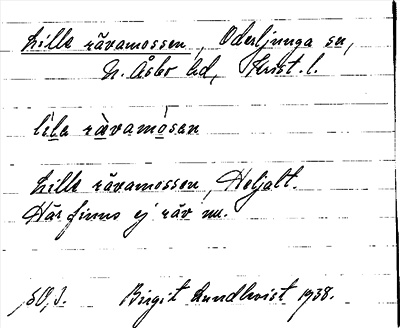 Lille rävamossen, Oderljunga sn,
N. Åsbo hd, Krist. l.
lìla rävamòsan
Lille rävamossen, Heljalt.
Här finns ej räv nu.
Birgit Lundkvist 1938.